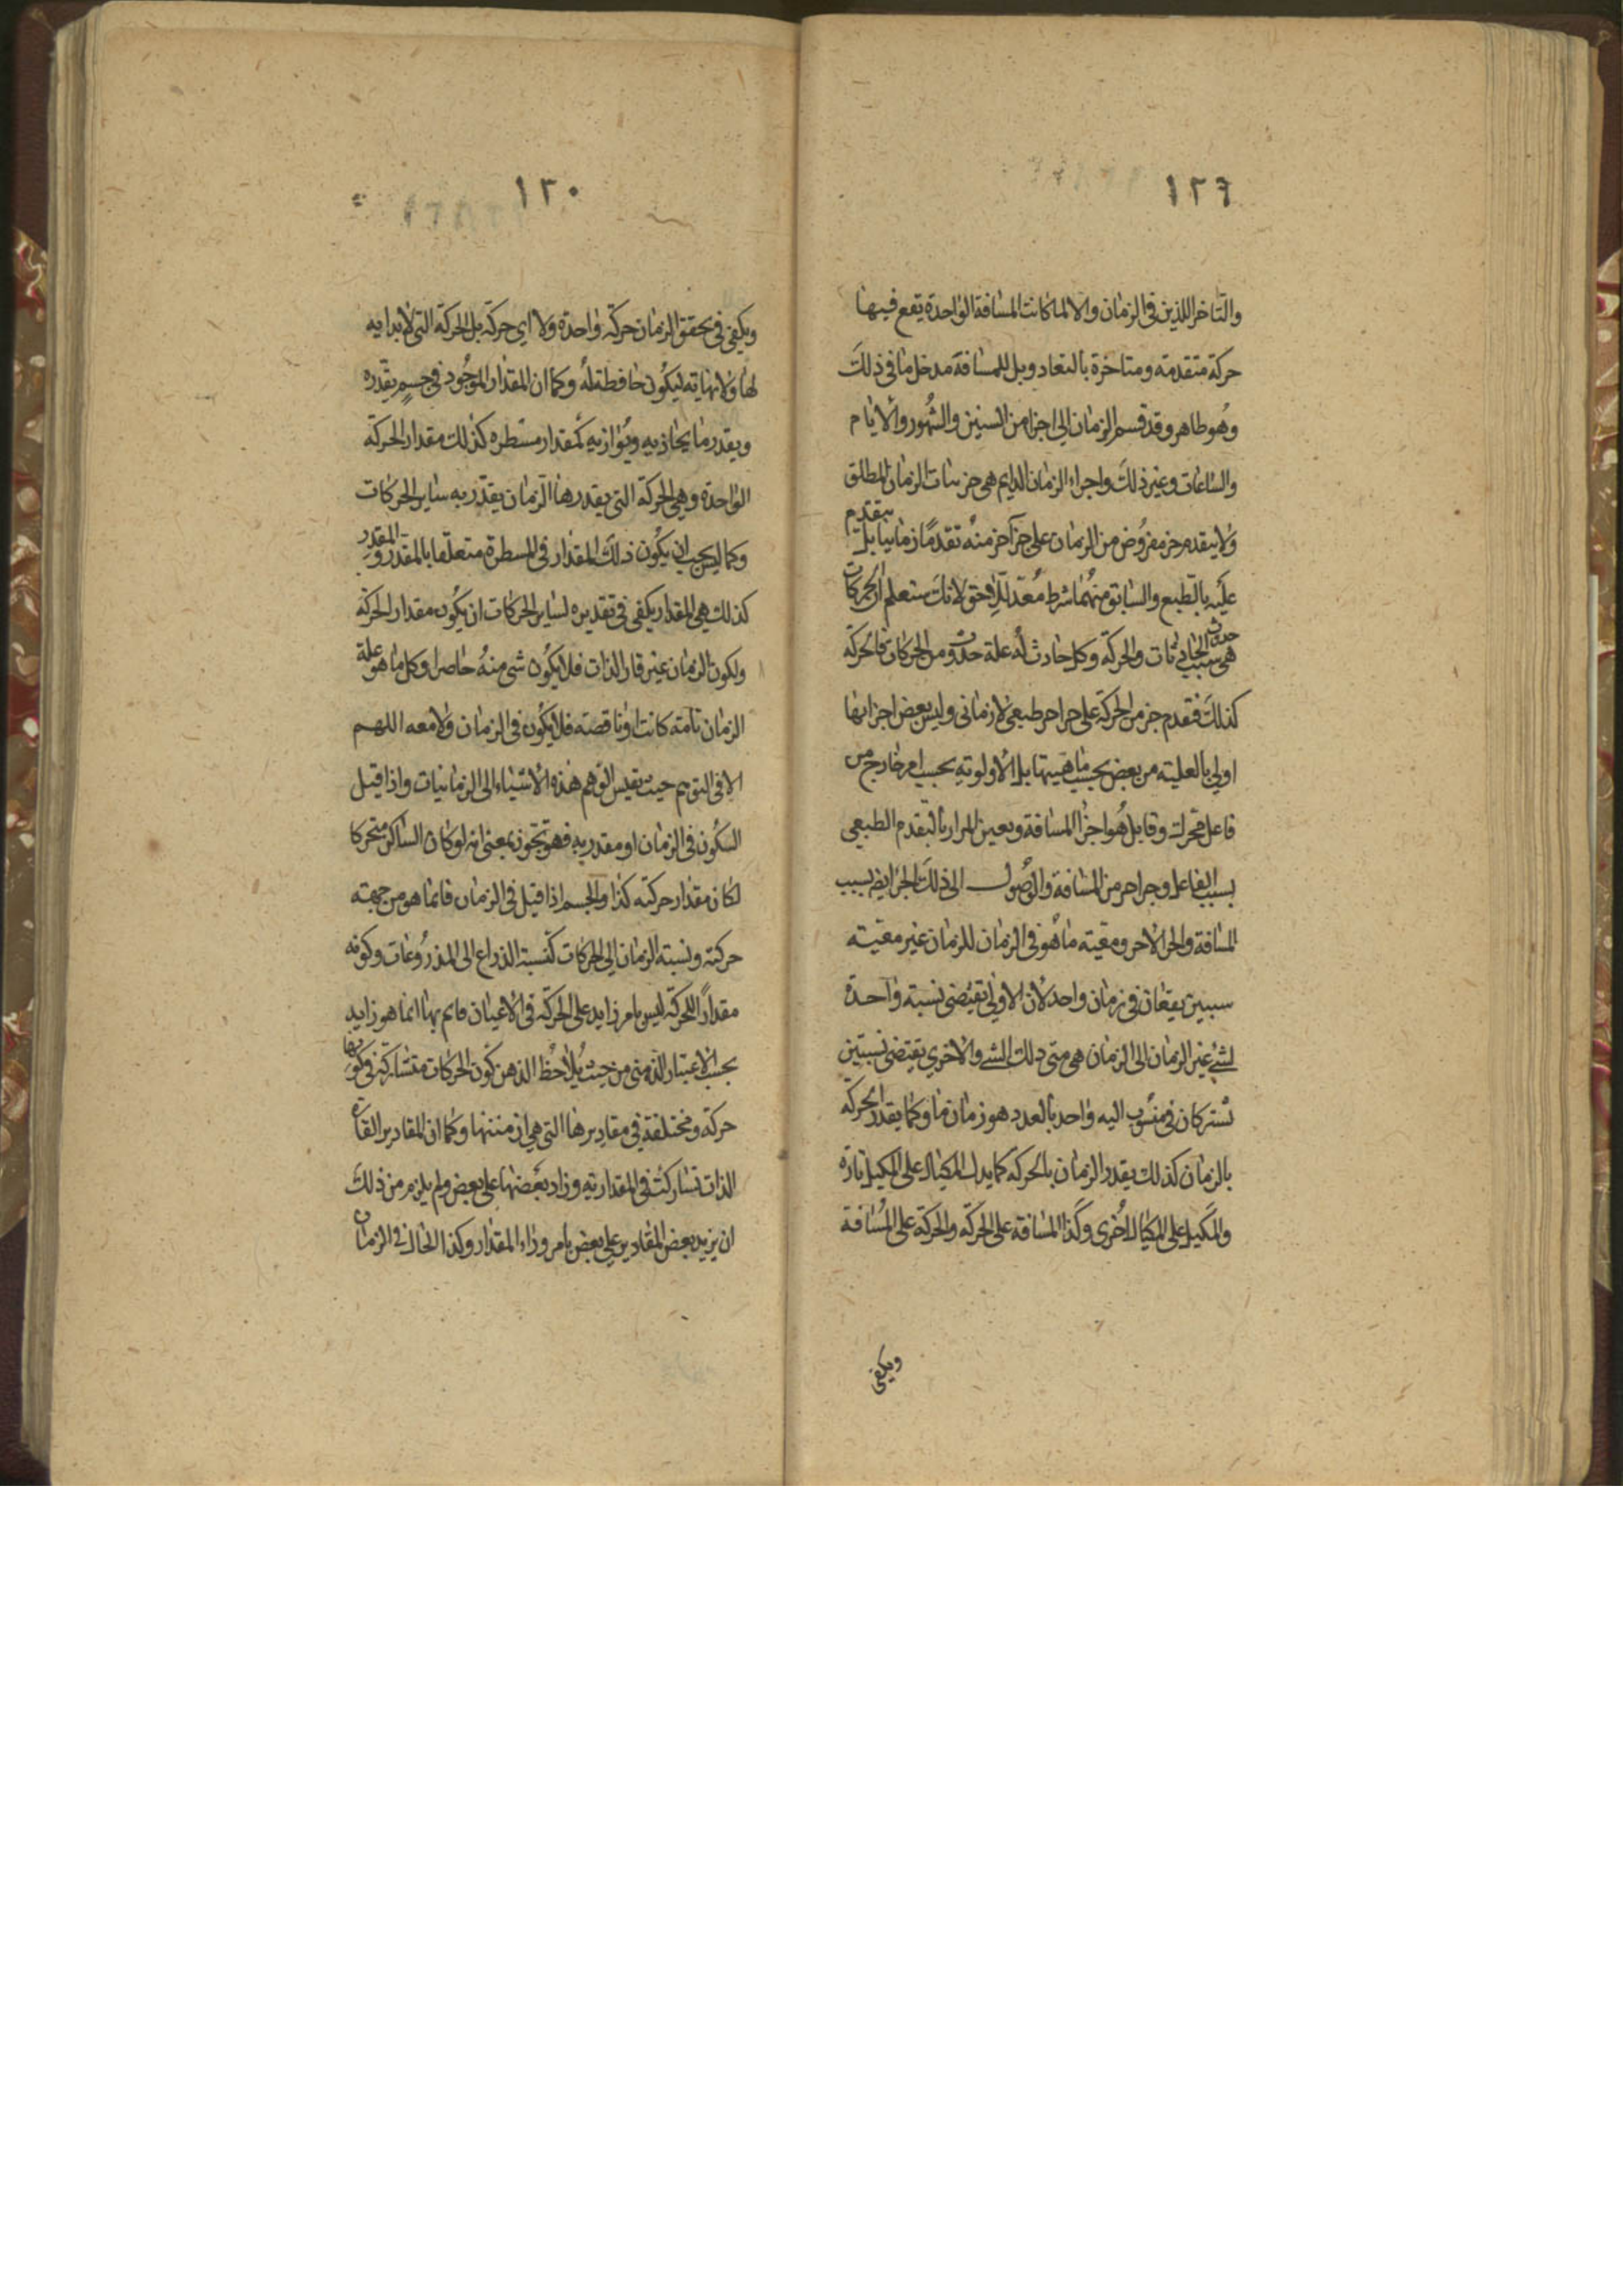 ١٢٦
والتاخر اللذين فى الزمان والا لما كانت المسافة الواحدة يقع فيها
حركة متقدمة ومتاخرة بالتعاد وبل للمسافة مدخل ما فى ذلك
وهو ظاهر وقد قسم الزمان الى اجزا من السنين والشهور والايام
والساعات وغير ذلك واجراء الزمان الدايم هى جزييات الزمان المطلق
ولا يتقدم جز مفروض من الزمان على جز آخر منه تقدمًا زمانيا بل يتقدم
عليه بالطبع والسابق منهما شرط معد للاحق لانك ستعلم ان الحركات
هى سبب حدوث الحادثات والحركة وكل حادث له علة حدوث ومن الحركات فالحركة
كذلك فتقدم جز من الحركة على جز اخر طبعى لا زمانى وليس بعض اجزائها
اولى بالعلية من بعض بحسب ماهيتها بل الاولوية بحسب امر خارج من
فاعل محرك وقابل هو اجزا المسافة وبعين المراد بالتقدم الطبعى
بسبب الفاعل وجزا حر من المسافة والوصول الى ذلك الجزا ايضا بسبب
المسافة والجزا الاخر ومعية ما هو فى الزمان للزمان غير معية
سببين يقعان فى زمان واحد لان الاولى تقتضى نسبة واحدة
لشئ غير الزمان الى الزمان هى متى ذلك الشئ والاخرى يقتضى نسبتين
تشتركان فى منسوب اليه واحد بالعدد هو زمان ما وكما يقدر الحركة
بالزمان كذلك يقدر الزمان بالحركة كما يدل المكيال على المكيل تارة
والمكيل على المكيال اخرى وكذا المسافة على الحركة والحركة على المسافة
ويكفى
١٢٠
ويكفى فى تحقق الزمان حركة واحدة ولا اى حركة بل الحركة التى لا بداية
لها ولا نهاية ليكون حافظة له وكما ان المقدار الموجود فى جسم يقدره
ويقدر ما يحاذيه ويوازيه كمقدار مسطرة كذلك مقدار الحركة
الواحدة وهى الحركة التى يقدرها الزمان يقدر به ساير الحركات
وكما ليس يجب ان يكون ذلك المقدار فى المسطرة متعلقا بالمقدر والمقدر
كذلك هى المقدار يكفى فى تقديره لساير الحركات ان يكون مقدار الحركة
ولكون الزمان غير قار الذات فلا يكون شى منه حاصرا وكل ما هو علة
الزمان تامة كانت او ناقصة فلا يكون فى الزمان ولا معه اللهم
الا فى التوهم حيث يقيس الوهم هذه الاشياء الى الزمانيات واذا قيل
السكون فى الزمان او مقدر به فهو تجوز بمعنى انه لو كان الساكن متحركا
لكان مقدار حركته كذا والجسم اذا قيل فى الزمان فانما هو من جهة
حركته ونسبة الزمان الى الحركات كنسبة الذراع الى المذروعات وكونه
مقدارًا للحركة ليس بامر زايد على الحركة فى الاعيان قايم بها انما هو زايد
بحسب الاعتبار الذهنى من حيث يلاحظ الذهن كون الحركات متشاركة فى كونها
حركة ومختلفة فى مقاديرها التى هى ازمنتها وكما ان المقادير القارة
الذات تشاركت فى المقدارية وزاد بعضها على بعض ولم يلزم من ذلك
ان يزيد بعض المقادير على بعض بامر وراء المقدار وكذا الحال فى الزمان